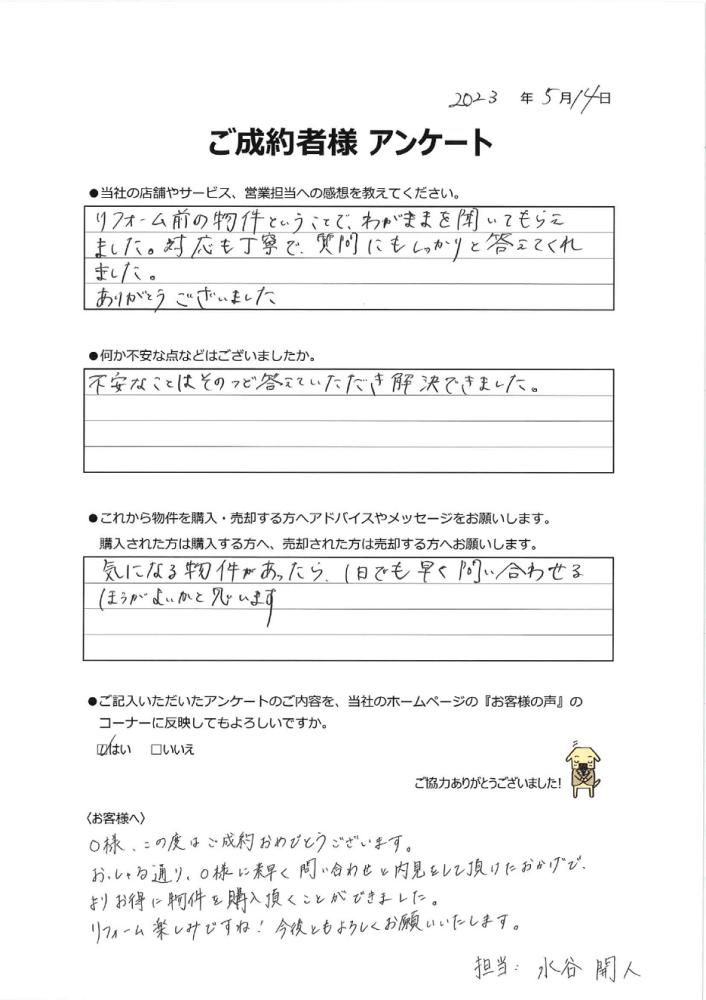 2023 年 5月14日
ご成約者様 アンケート
●当社の店舗やサービス、営業担当への感想を教えてください。
リフォーム前の物件ということで、わがままを聞いてもらえ
ました。対応も丁寧で、質問にもしっかりと答えてくれ
ました。
ありがとうございました
●何か不安な点などはございましたか。
不安なことはそのつど答えていただき解決できました。
●これから物件を購入・売却する方へアドバイスやメッセージをお願いします。
購入された方は購入する方へ、売却された方は売却する方へお願いします。
気になる物件があったら、1日でも早く問い合わせる
ほうがよいかと思います
●ご記入いただいたアンケートのご内容を、当社のホームページの『お客様の声』の
コーナーに反映してもよろしいですか。
☑はい □いいえ
ご協力ありがとうございました!
〈お客様へ〉
O様、この度はご成約おめでとうございます。
おっしゃる通り、O様に素早く問い合わせと内見をして頂けたおかげで、
よりお得に物件を購入頂くことができました。
リフォーム楽しみですね!今後ともよろしくお願いいたします。
担当: 水谷 開人